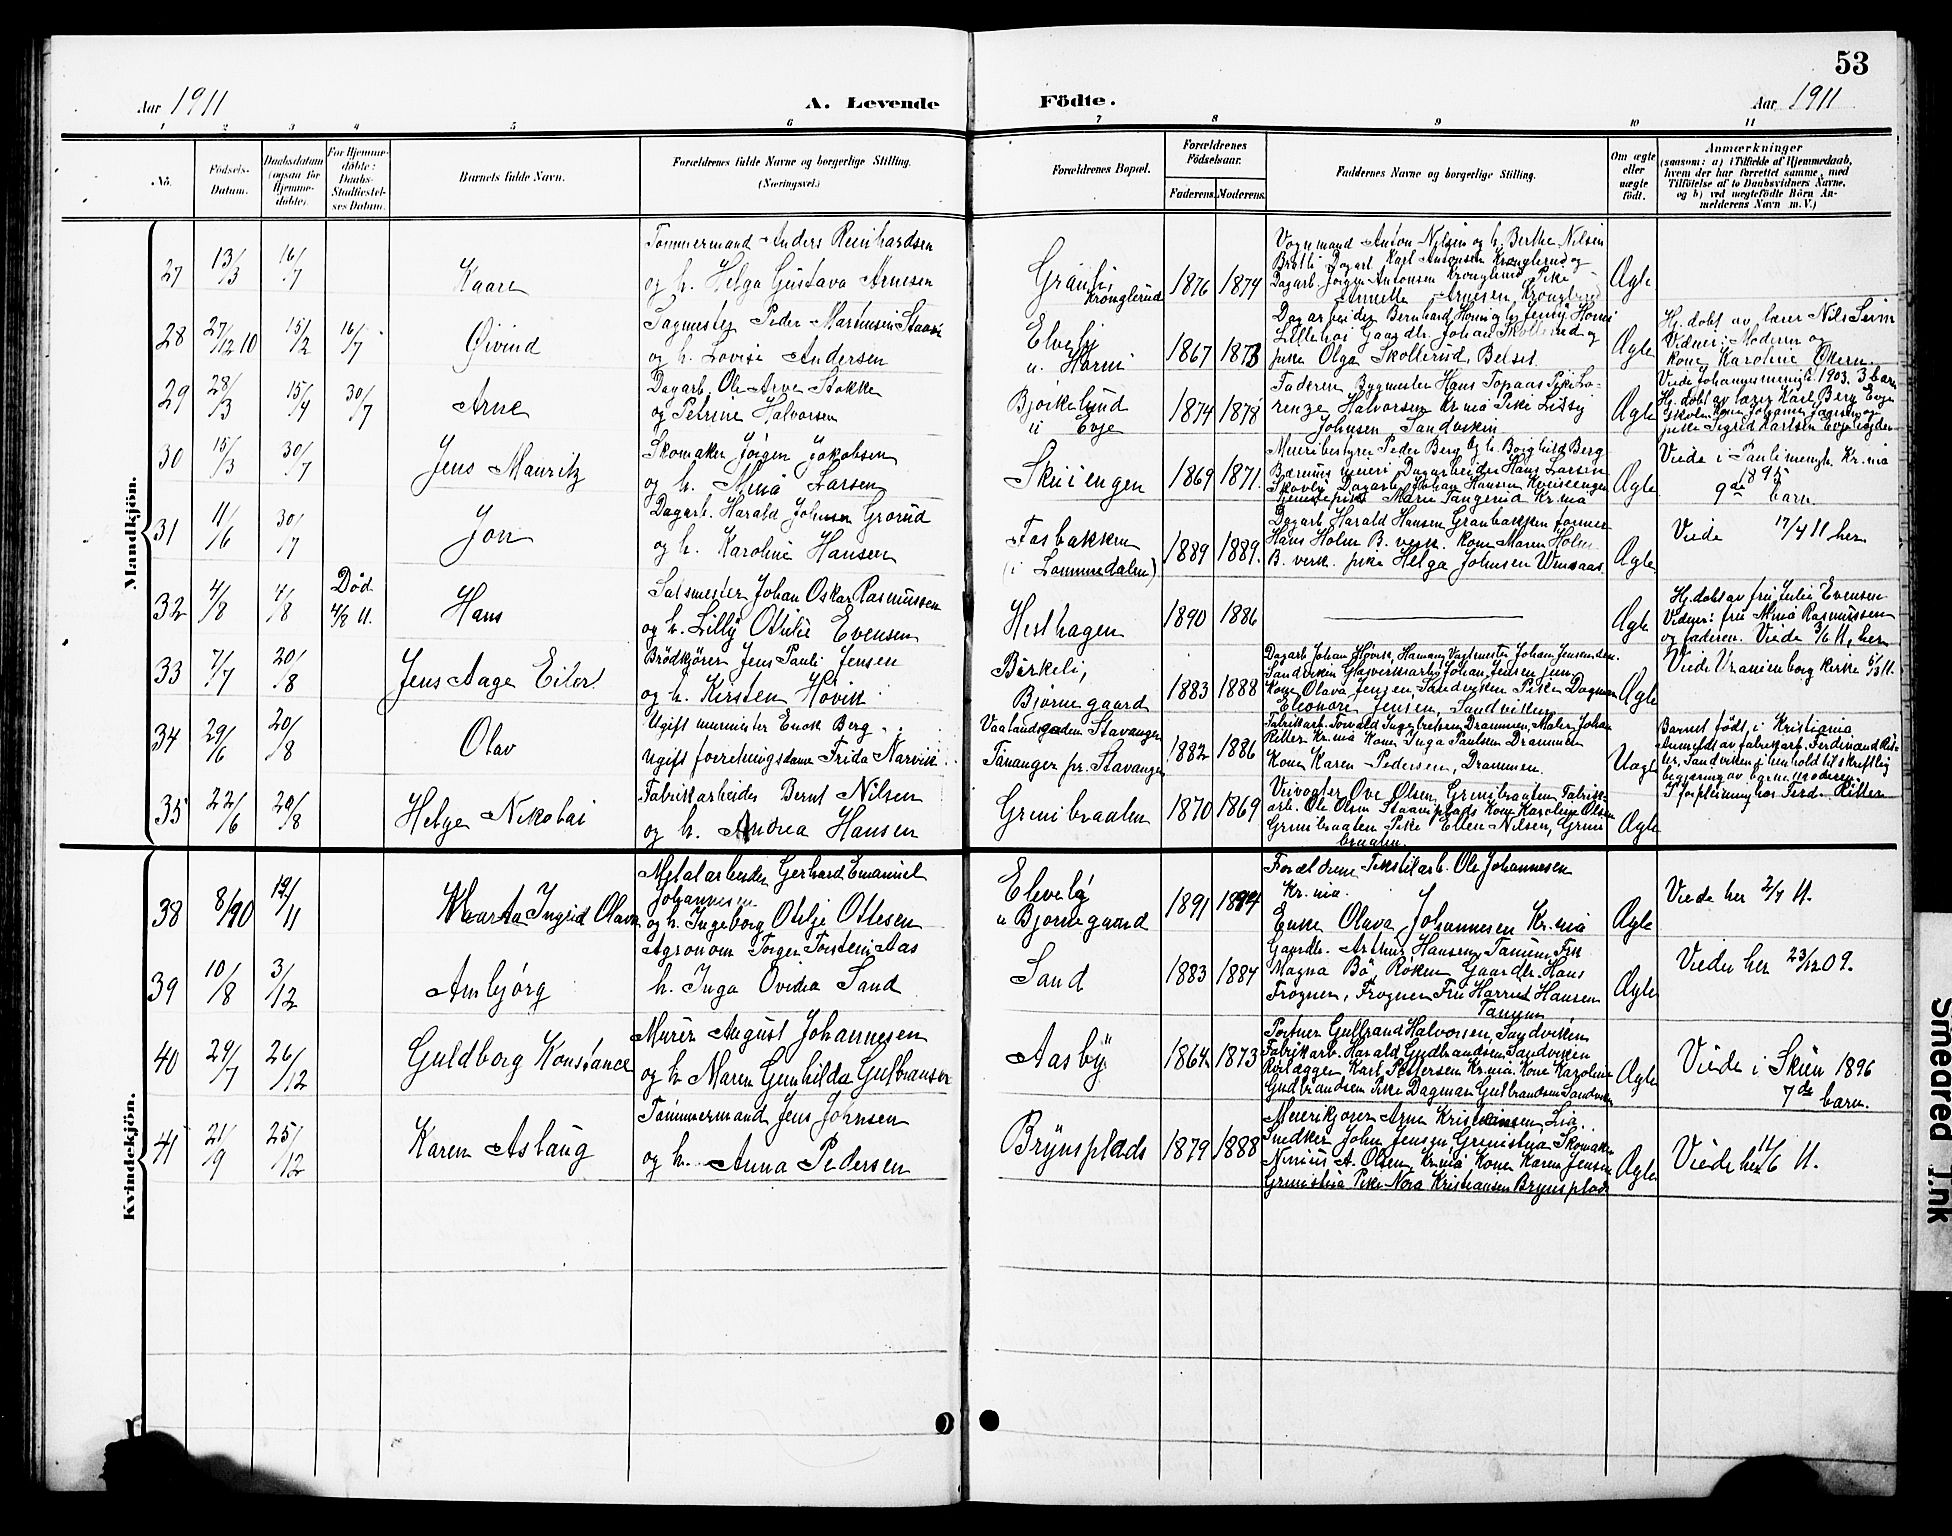 53
Aar 1911
A. Levende
Födte.
Aar 1911
1 2 3 4 5 6 7 8 9 10 11
No.
Födsels-Datum.
Daabsdatum (ogsaa for Hjemmedöbte).
For Hjemmedöbte: Daabs-Stadfæstelses Datum.
Barnets fulde Navn.
Forældrenes fulde Navne og borgerlige Stilling.
(Næringsvei.)
Forældrenes Bopæl.
Forældrenes Födselsaar.
Faderens. Moderens.
Faddernes Navne og borgerlige Stilling.
Om ægte eller uægte födt.
Anmærkninger
(saasom: a) i Tilfælde af Hjemmedaab,
hvem der har forrettet samme, med
Tilföielse af to Daabsvidners Navne,
og b) ved uægtefödte Börn An-
melderens Navn m. V.)
Mandkjön.
27 13/3 16/7 Kaare
Tømmermand Anders Reinhardsen
og h. Helga Gustava Arnesen
Granli Kronglerud 1876 1874
Vognmand Anton Nilsen og h. Berthe Nilsen
Bratli Dagarb. Karl Antonsen Kronglerud og
Dagarb. Jørgen Antonsen Kronglerud Pike
Annette Arnesen, Kronglerud
Ægte
28 27/12 10 15/2 16/7 Øivind
Sagmester Peder Martinsen Staavi
og h. Lovise Andersen
Elveli u. Horni 1867 1873
Dagarbeider Bernhard Horni og h. Jenny Horni
Lillehoi Gaardbr. Johan Skollerud og
pike Olga Skollerud, Belset
Ægte
Hj. døbt av lærer Nils Seim
Vidner: Moderen og
kone Karoline Økern.
29 28/3 15/4 30/7 Arne
Dagarb. Ole Arve Stokke
og Petrine Halvorsen
Bjørkelund u Evje 1874 1878
Faderen Bygmester Hans Topaas Pike Lo-
renze Halvorsen Kr.nia Pike Lissy
Johnsen Sandviken
Ægte
Viede Johannesmenigh. 1903. 3 barn
Hj. døbt av lærer Karl Berg Evje
skole. Kone Johanne Jansen og
pike Sigrid Karlsen Evje
30 15/3 30/7 Jens Mauritz
Skomaker Jörgen Jakobsen
og h. Mina Larsen
Skuiengen 1869 1871
Meieribestyrer Peder Berg og h. Borghild Berg
Bærums meieri Dagarbeider Hans Larsen
Skovly Dagarb. Johan Hansen
Tjenestepike Marie Tangerud Kr.nia
Ægte
Viede i Paulimenigh. Kr.nia
1895
9de barn
31 11/6 30/7 Jon
Dagarb. Harald Johnsen Grorud
og h. Karoline Hansen
Fosbakken
(i Lommedalen) 1889 1889.
Dagarb. Harald Hansen Granbakken former
Hans Holm B. verk. Kone Maren Holm
B. verk. pike Helga Johnsen
Ægte
Viede 17/4 11 her
32 4/8 4/8 Død 4/8 11. Hans
Salsmester Johan Oskar Rasmussen
og h. Lilly Othilie Evensen
Hesthagen 1890 1886
Ægte
Hj. døbt av fru Julie Evensen
Vidner: fru Mina Rasmussen
og faderen. Viede 3/6 11, her
33 7/7 20/8 Jens Aage Eiler
Brödkjörer Jens Pauli Jensen
og h. Kirsten Hövik
Birkeli,
Bjørnegaard 1883 1888
Dagarb Johan Høvik, Hamang Vagtmester Johan Jensen
Sandviken Glasverksarb. Johan Jensen jun.
Kone Olava Jensen, Sandviken Pike Dagmar
Eleonore Jensen, Sandviken
Ægte
Viede Uranienborg kirke 5/3 11.
34 29/6 20/8 Olav
Ugift murmester Enok Berg
Ugift forretningsdame Frida Narvik
Vaalandsgaden Stavanger
Tananger pr. Stavanger 1882 1886
Fabrikarb. Torvald Ingebretsen Drammen, Maler Johan
Ritter Kr.nia Kone Inga Paulsen Drammen
Kone Karen Pedersen, Drammen.
Uægte
Barnet født i Kristiania
Anmeldt av fabrikarb. Ferdinand Rit-
ter, Sandviken i henhold til skriftlig
begjæring av barnemoderen.
I forpleining hos Ferd. Ritter
35 22/6 20/8 Helge Nikolai
Fabrikarbeider Bernt Nilsen
og h. Andrea Hansen
Grinibraaten 1870 1869
Veivogter Ove Olsen, Grinibraaten Fabrik-
arb. Ole Olsen Staaviplads Kone Karoline Olsen
Grinibraaten Pike Ellen Nilsen, Grini
braaten.
Ægte
Kvindekjön.
38 8/10 19/11 Marta Ingrid Olava
Metalarbeider Gerhard Emanuel
Johannesen
og h. Ingeborg Otilje Ottesen
Elveby
u Bjørnegaard 1891 1894
Forældrene Tekstilarb. Ole Johannesen
Kr.nia.
Enke Olava Johannesen Kr.nia
Ægte
Viede her 2/7 11.
39 10/8 3/12 Ambjörg
Agronom Torger Torstein Aas
h. Inga Ovidia Sand
Sand 1883 1884
Gaardbr. Arthur Hansen, Tanum Frk
Magna Bö, Roken Gaardbr Hans
Frogner, Frogner Fru Harriet Hansen
Tanum
Ægte
Viede her 23/12 09.
40 29/7 26/12 Guldborg Konstance
Murer August Johannesen
og h. Maren Gunhilda Gulbransen
Aasby 1864 1873
Portner Gulbrand Halvorsen, Sandviken
Fabrikarb. Harald Gudbrandsen Sandviken
Rørlægger Karl Pettersen Kr.nia Kone Karoline
Gudbrandsen Pike Dagmar Gulbrandsen Sandviken
Ægte
Viede i Skien 1896
7de barn.
41 21/9 25/12 Karen Aslaug
Tømmermand Jens Johnsen
og h. Anna Pedersen
Brynsplads 1879 1888
Meierikjører Arne Kristiansen Lia
Snedker John Jensen Grinistua Skomaker
A. Olsen Kr.nia Kone Karen Jensen
Grinistua Pike Nora Kristiansen Brynsplads
Ægte
Viede her 11/6 11.
Smeared Ink